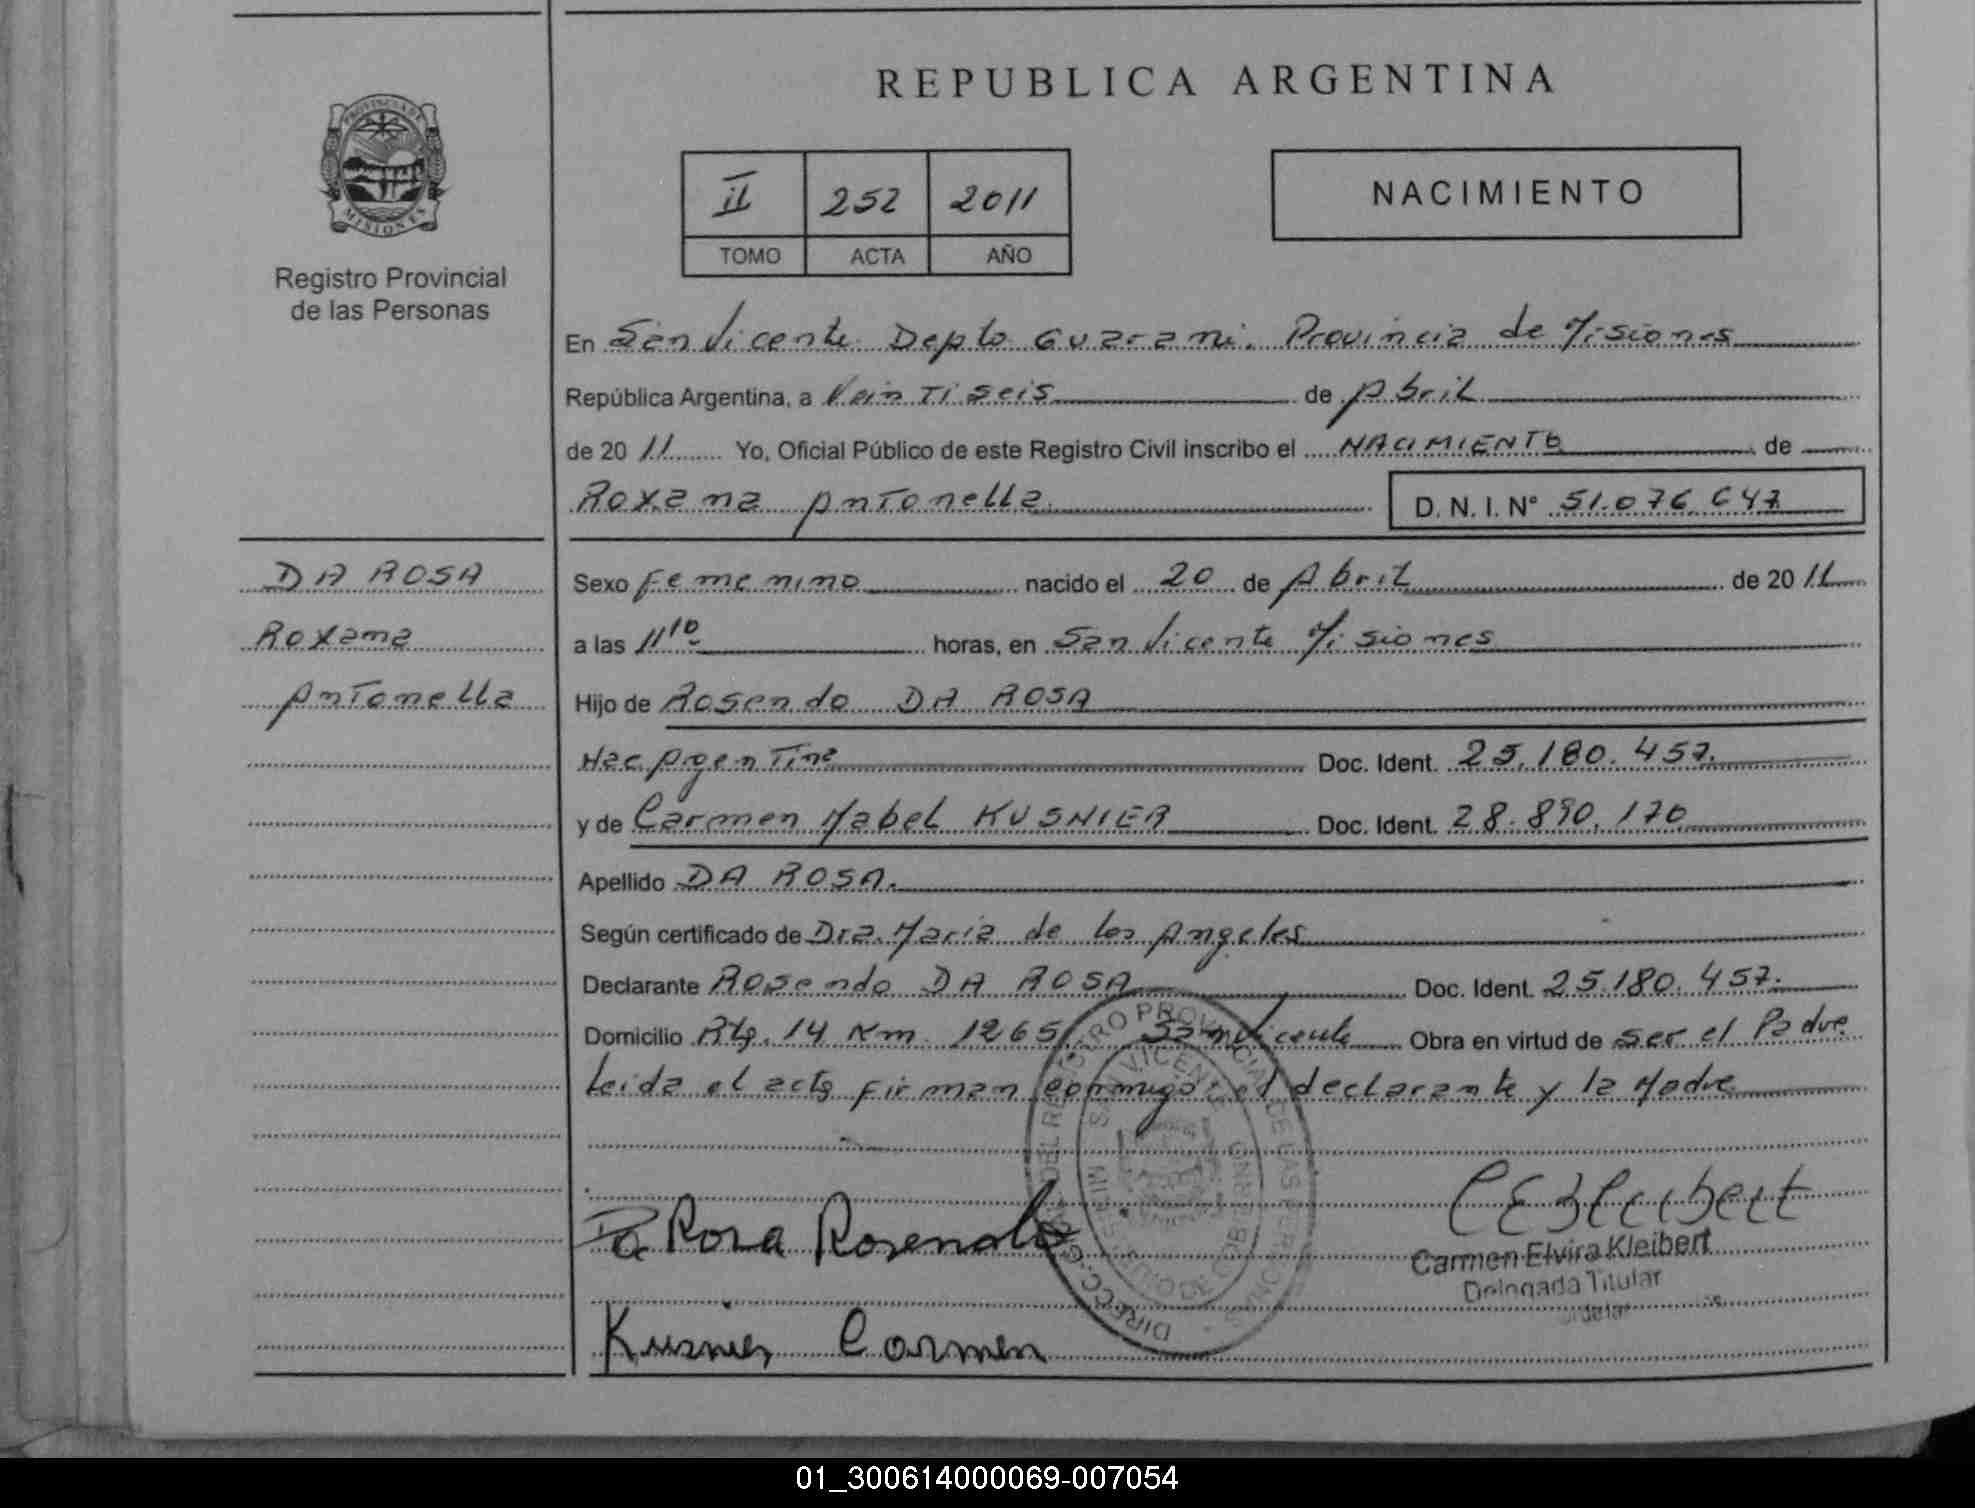 REPUBLICA ARGENTINA
PROVINCIA DE
MISIONES
Registro Provincial
de las Personas
II 252 2011
TOMO ACTA AÑO
NACIMIENTO
En San Vicente Depto Guarani. Provincia de Misiones
República Argentina, a Veintiseis de Abril
de 20 11 Yo, Oficial Público de este Registro Civil inscribo el NACIMIENTO de
Roxana Antonella D. N. I. N° 51.076.647
DA ROSA
Roxana
Antonella
Sexo Femenino nacido el 20 de Abril de 20 11
a las 11 10 horas, en San Vicente Misiones
Hijo de Rosendo DA ROSA
Nac Argentina Doc. Ident. 25.180.457.
y de Carmen Mabel KUSNIER Doc. Ident. 28.890.170
Apellido DA ROSA.
Según certificado de Dra. Maria de los Angeles
Declarante Rosendo DA ROSA Doc. Ident. 25.180.457.
Domicilio Rta. 14 Km. 1265 San Vicente Obra en virtud de ser el Padre
Leida el acta firman conmigo el declarante y la Madre
Da Rosa Rosendo
Kusnier Carmen
CEKleibert
Carmen Elvira Kleibert
Delegada Titular
01_300614000069-007054